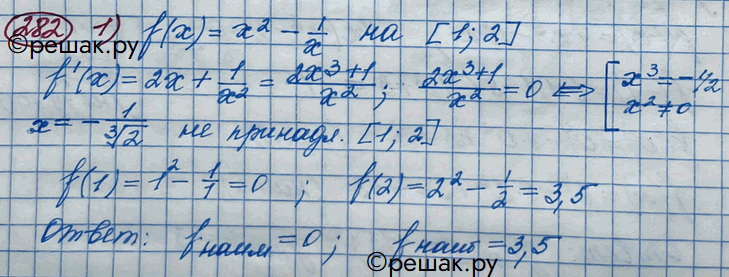 282 1) f(x) = x² - 1/x на [1; 2]
©решак.ру
f'(x) = 2x + 1/x² = (2x³+1)/x²; (2x³+1)/x² = 0 ⟺ [ x³ = -1/2
x² ≠ 0
x = - 1/∛2 не принадл. [1; 2]
f(1) = 1² - 1/1 = 0 ; f(2) = 2² - 1/2 = 3,5
Ответ: fнаим = 0; fнаиб = 3,5
©решак.ру